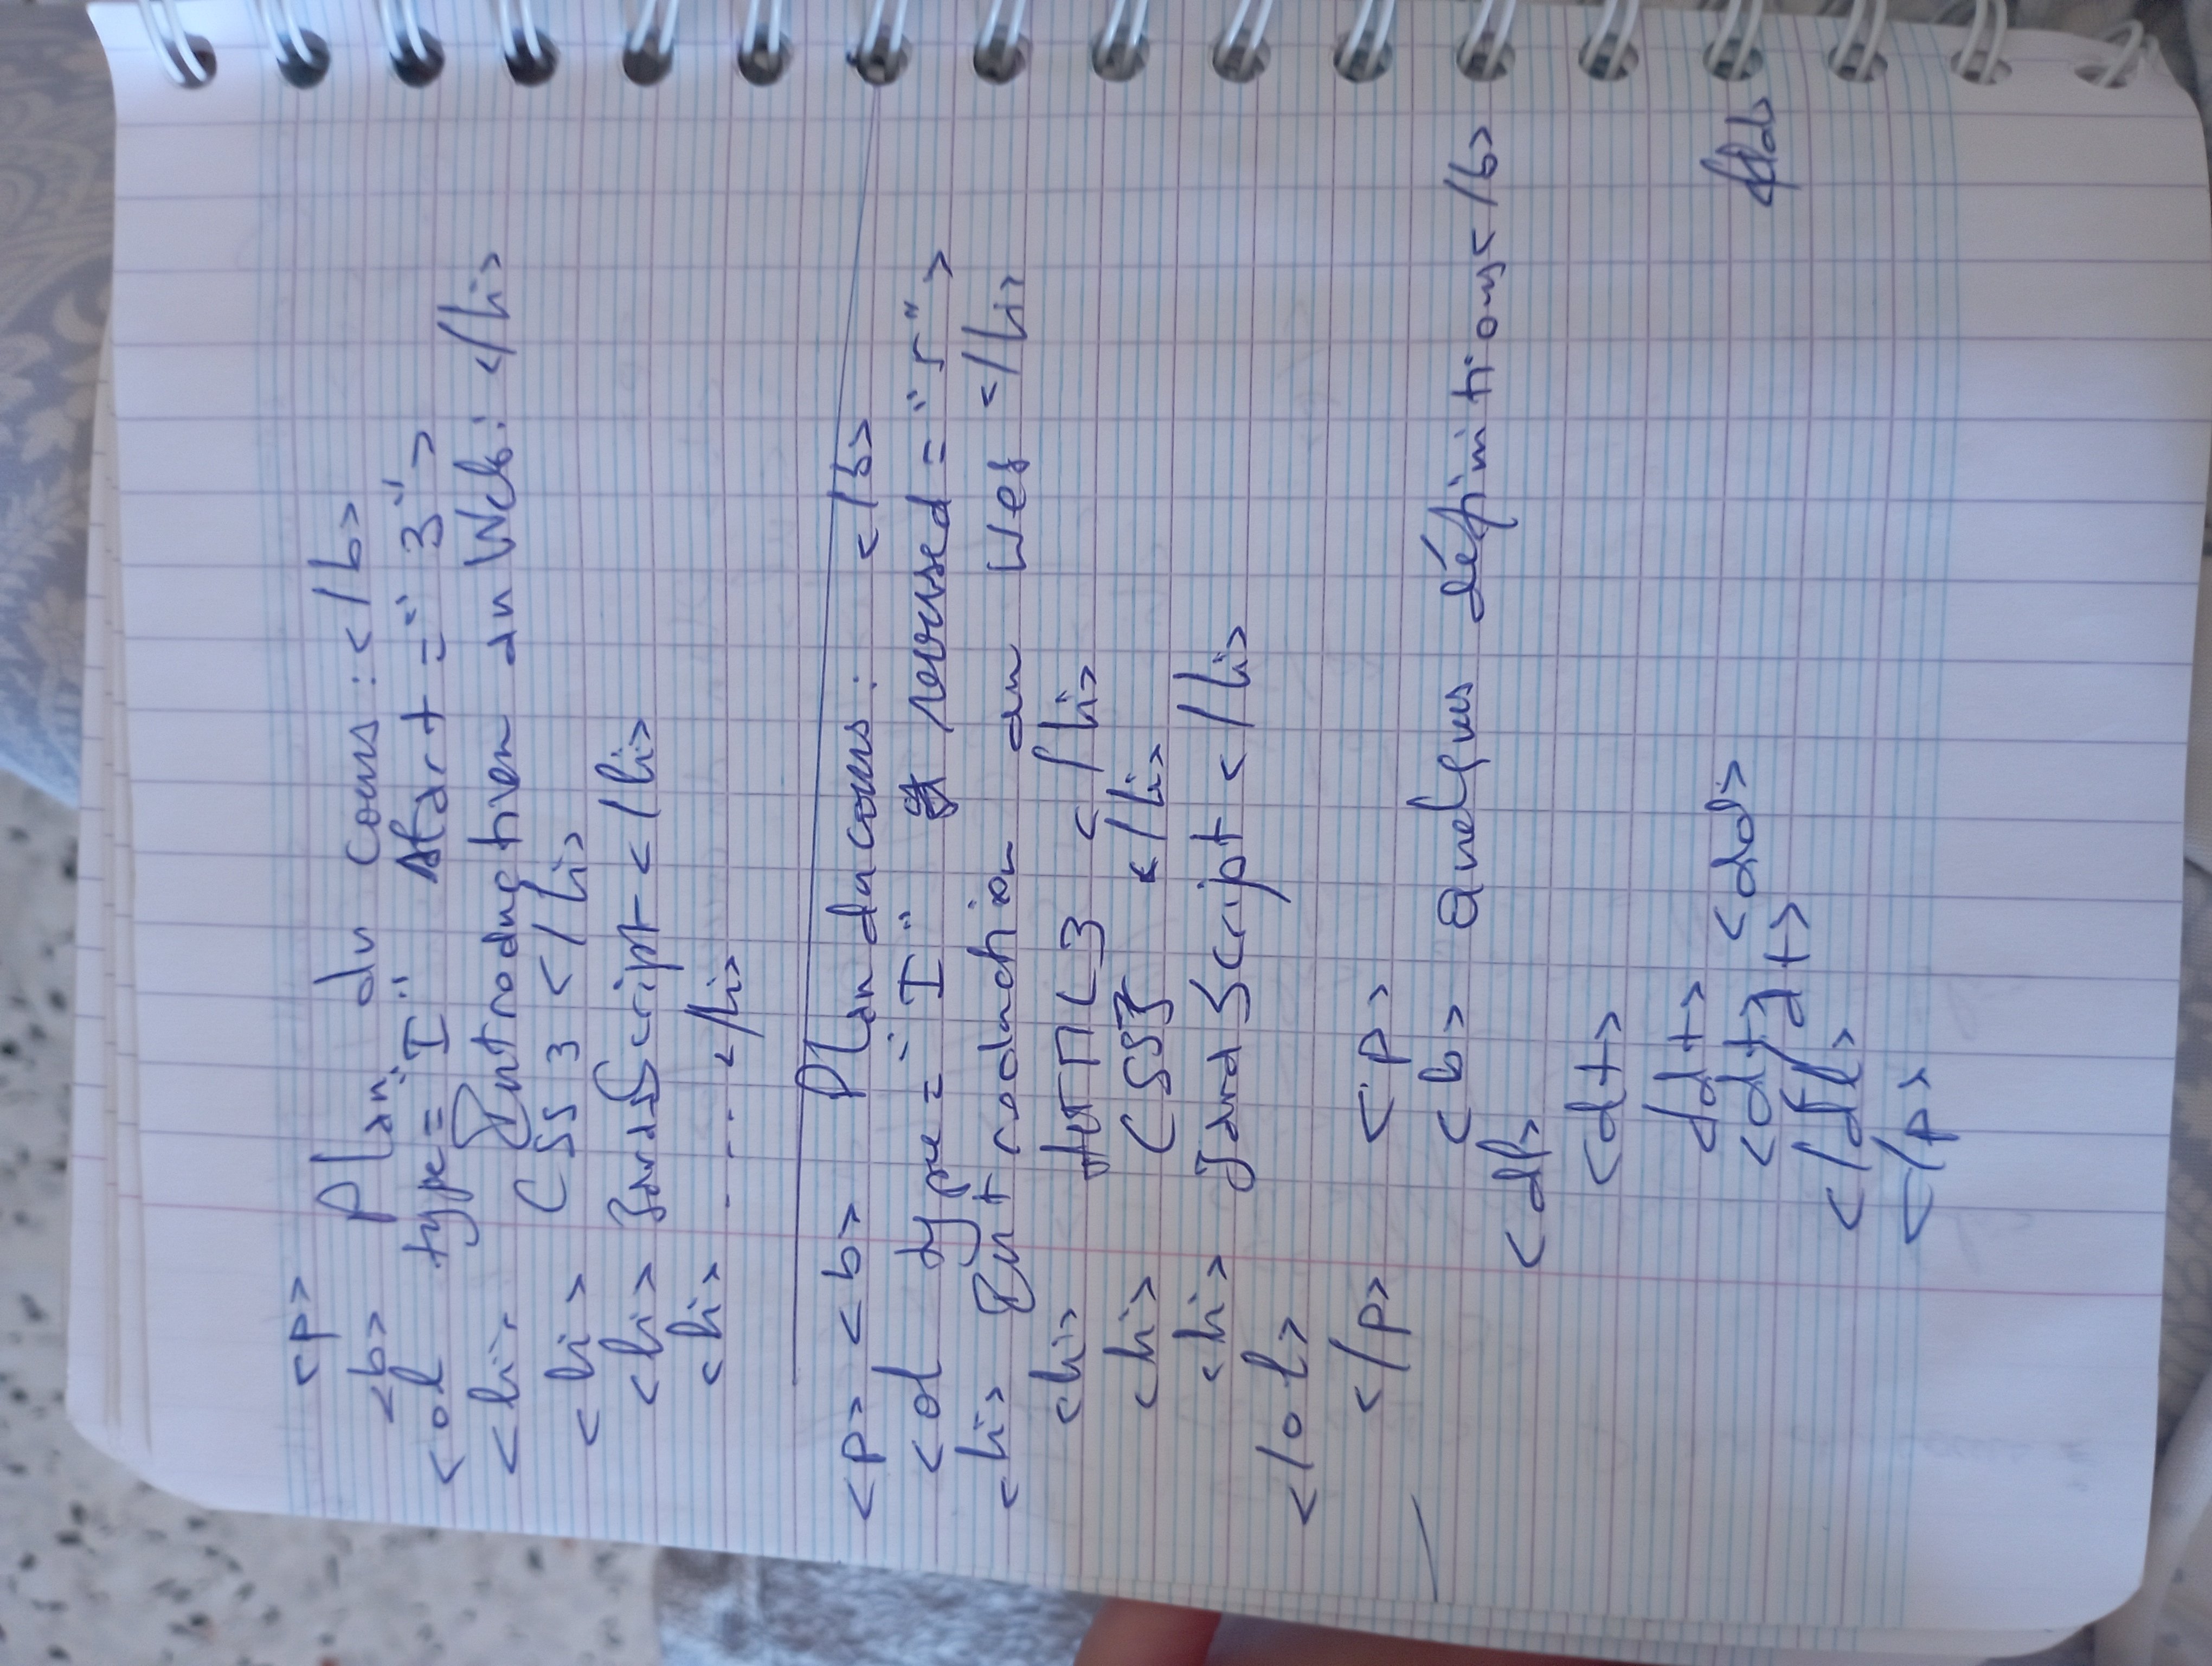 <p>
<b> Plan du cours : </b>
<ol type="I" start="3">
<li> Introduction au Web : </li>
<li> CSS3 </li>
<li> JavaScript </li>
<li> .... </li>
<p> <b> Plan du cours : </b>
<ol type="I" reversed="r">
<li> Introduction au Web </li>
<li> HTML3 </li>
<li> CSS3 </li>
<li> JavaScript </li>
</ol>
</p>
<p>
<b> Quelques définitions </b>
<dl>
<dt>
dd+>
<dt> <dd>
</dt>
</dl>
</p>